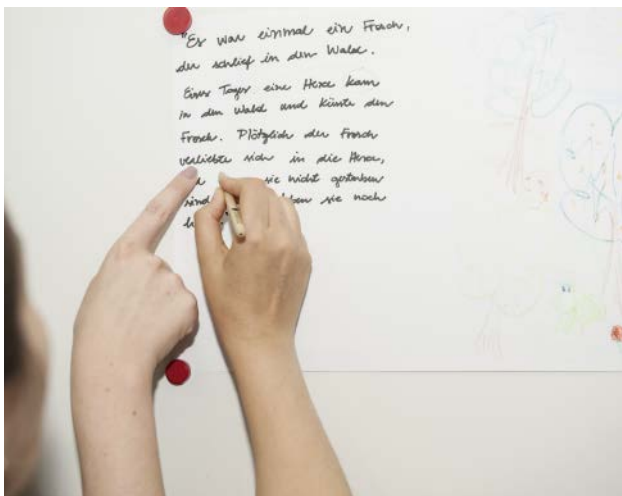 "Es war einmal ein Frosch,
der schlief in den Wald.
Eines Tages eine Hexe kam
in den Wald und küsste den
Frosch. Plötzlich der Frosch
verliebte sich in die Hexe,
sie nicht gestorben
sind sie noch